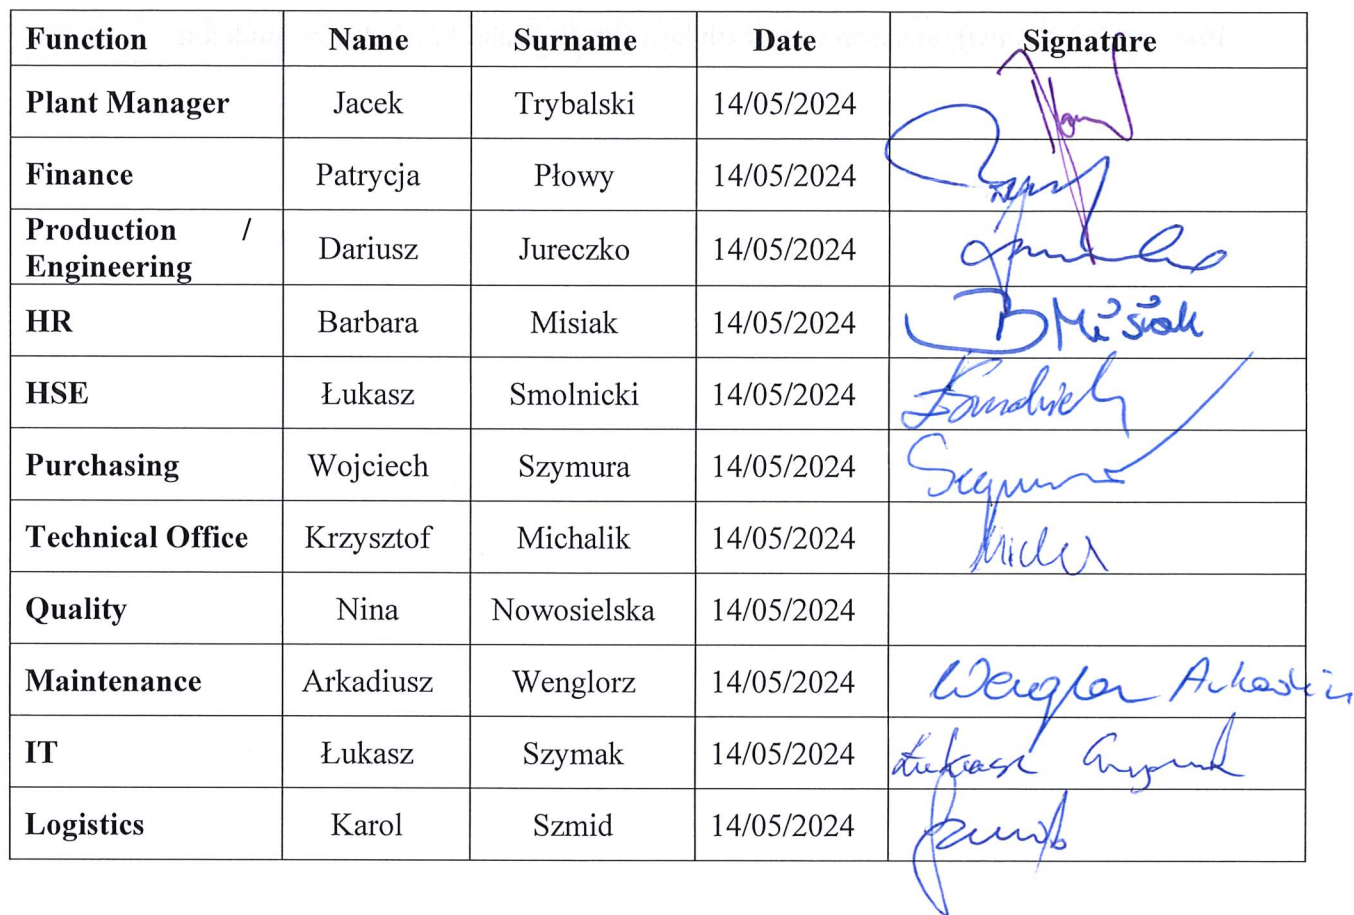 Function Name Surname Date Signature
Plant Manager Jacek Trybalski 14/05/2024
Finance Patrycja Płowy 14/05/2024
Production /
Engineering Dariusz Jureczko 14/05/2024
HR Barbara Misiak 14/05/2024 B Misiak
HSE Łukasz Smolnicki 14/05/2024
Purchasing Wojciech Szymura 14/05/2024
Technical Office Krzysztof Michalik 14/05/2024
Quality Nina Nowosielska 14/05/2024
Maintenance Arkadiusz Wenglorz 14/05/2024
IT Łukasz Szymak 14/05/2024 Łukasz
Logistics Karol Szmid 14/05/2024